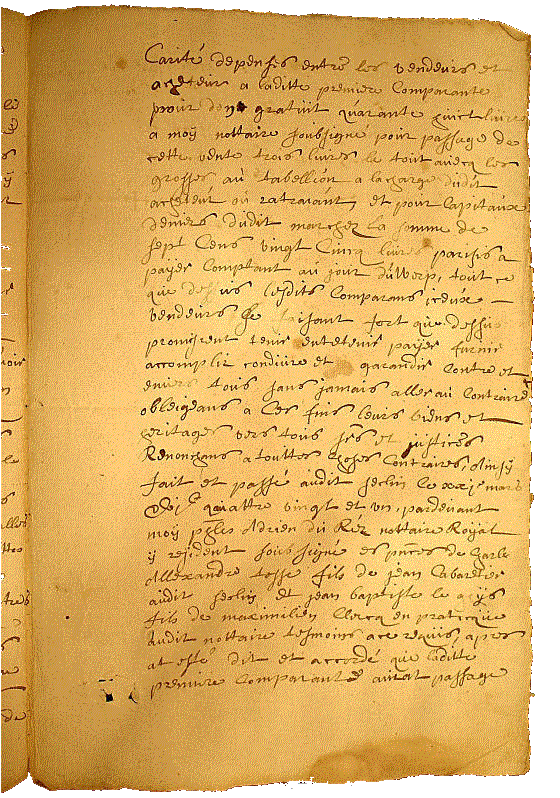 Carité depenses entre les vendeurs et
acheteur a laditte premiere Comparante
pour don gratuit quarante huict livres
a moÿ nottaire soubsigné pour passage de
cette vente trois livres le tout avecq les
grosses au tabellion a lacharge dudit
acheteur ou ratraiant, et pour Capitaux
deniers dudit marchez la somme de
sept Cens vingt Cincq livres parisis a
païer Comptant au jour duWerp, tout ce
que dessus lesdits Comparans iceux
vendeurs se faisant fort que dessus
promirent tenir entretenir païer furnir
accomplir conduire et garandir Contre et
envers tous sans jamais aller au Contraire
obleigeans a Ces fins leurs biens et
heritages vers tous srs et justices
Renonchans a touttes choses Contraires, Ainsÿ
fait et passé audit seclin le xxje mars
quattre vingt et un, pardevant
moÿ Adrien du Réz nottaire Roÿal
ÿ resident soubsigné es pnces de Charle
Allexandre tesse fils de jean Cabaretier
audit seclin et jean baptiste le
fils de maximilien Clercq en praticque
dudit nottaire tesmoins a ce requis apres
at esté dit et accordé que laditte
premiere Comparante aurat passage